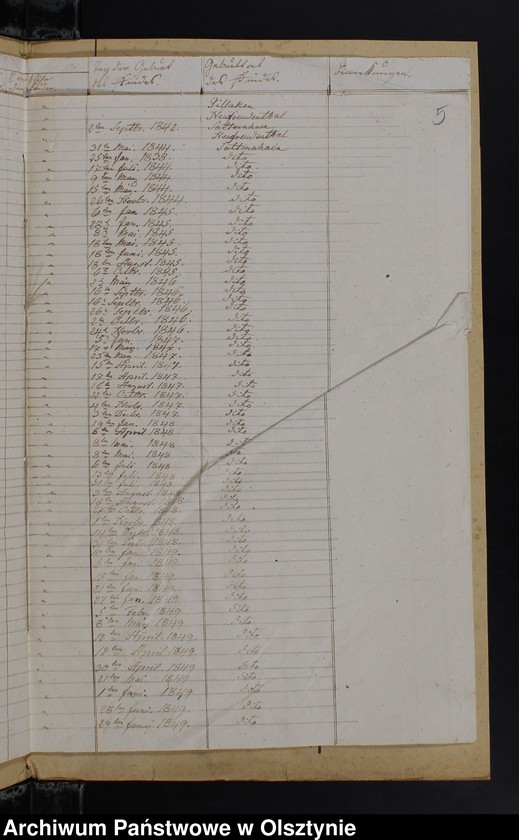 Tag der Geburt des Kindes. Geburtsort des Kindes. Bemerkungen.
5
Pillaken
Neufreudenthal
2ten Septbr. 1842. Sottonaken
Neufreudenthal
31ten Mai. 1844. Sottonaken
25ten Jan. 1838. dito
17ten Juli. 1844. dito
9ten May 1844 dito
15ten May. 1844. dito
26ten Novbr. 1844. dito
6ten Jan 1845. dito
22t Jan. 1845. dito
8t Mai 1845 dito
18ten Mai. 1845. dito
18ten Juni. 1845. dito
18ten August. 1845. dito
6t Octbr. 1845 dito
2t May 1846 dito
16ten Septbr. 1846. dito
16t Septbr. 1846. dito
26t Septbr. 1846. dito
2t Octbr. 1846. dito
24t Novbr. 1846. dito
5t Jan. 1847. dito
12t May. 1847. dito
23ten May 1847. dito
15ten April. 1847. dito
17ten April. 1847. dito
16ten August. 1847. dito
Octbr. 1847. dito
Novbr. 1847 dito
3ten Decbr. 1847 dito
19ten Jan. 1848 dito
6ten April 1848 dito
8ten Mai. 1848 dito
8ten Mai. 1848 dito
6ten Juli 1848 dito
Juli. 1848 dito
31ten Juli 1848 dito
3ten August. 1848 dito
18ten August. dito
Octbr. 1848 dito
1ten Novbr. 1848. dito
14ten Decbr. 1848. dito
Decbr. 1848. dito
Jan. 1849. dito
Jan. 1849. dito
15ten Jan 1849 dito
21ten Jan. 1849 dito
27ten Jan. 1849 dito
5ten Febr. 1849 dito
8ten May. 1849 dito
12ten April 1849. dito
19ten April 1849. dito
30ten April. 1849 dito
21ten Mai 1849 dito
1ten Juni. 1849 dito
28ten Juni. 1849. dito
29ten Juni 1849. dito
Archiwum Państwowe w Olsztynie